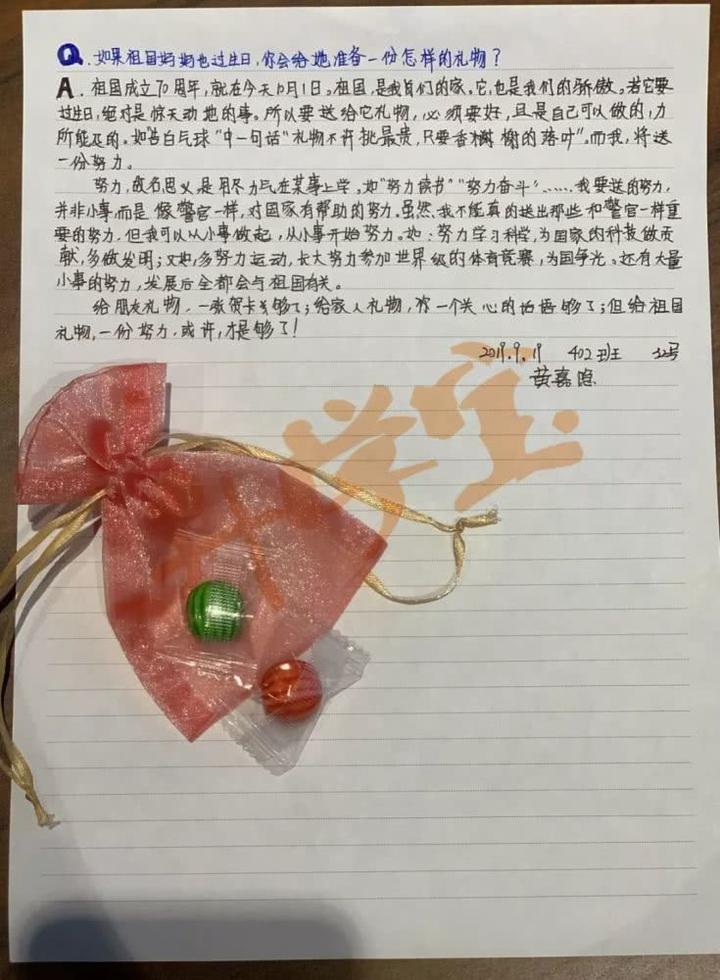 Q.如果祖国妈妈也过生日,你会给她准备一份怎样的礼物?
A.祖国成立70周年,就在今天10月1日。祖国,是我们的家。它,也是我们的骄傲。若它要
过生日,绝对是惊天动地的事。所以要送给它礼物,必须要好,且是自己可以做的,力
所能及的。如告白气球"中一句话"礼物不许挑最贵,只要香榭的落叶"。而我,将送
一份努力。
努力,故名思义,是用尽力气在某事上学,如"努力读书""努力奋斗"……我要送的努力,
并非小事,而是像警官一样,对国家有帮助的努力。虽然,我不能真的送出那些和警官一样重
要的努力,但我可以从小事做起,从小事开始努力。如:努力学习科学,为国家的科技做贡
献,多做发明;又如,多努力运动,长大努力参加世界级的体育竞赛,为国争光。还有大量
小事的努力,发展后全都会与祖国有关。
给朋友礼物,一张贺卡够了;给家人礼物,一个关心的话语够了;但给祖国
礼物,一份努力,或许,才是够了!
2019.9.19 402班 32号
黄嘉
升学宝